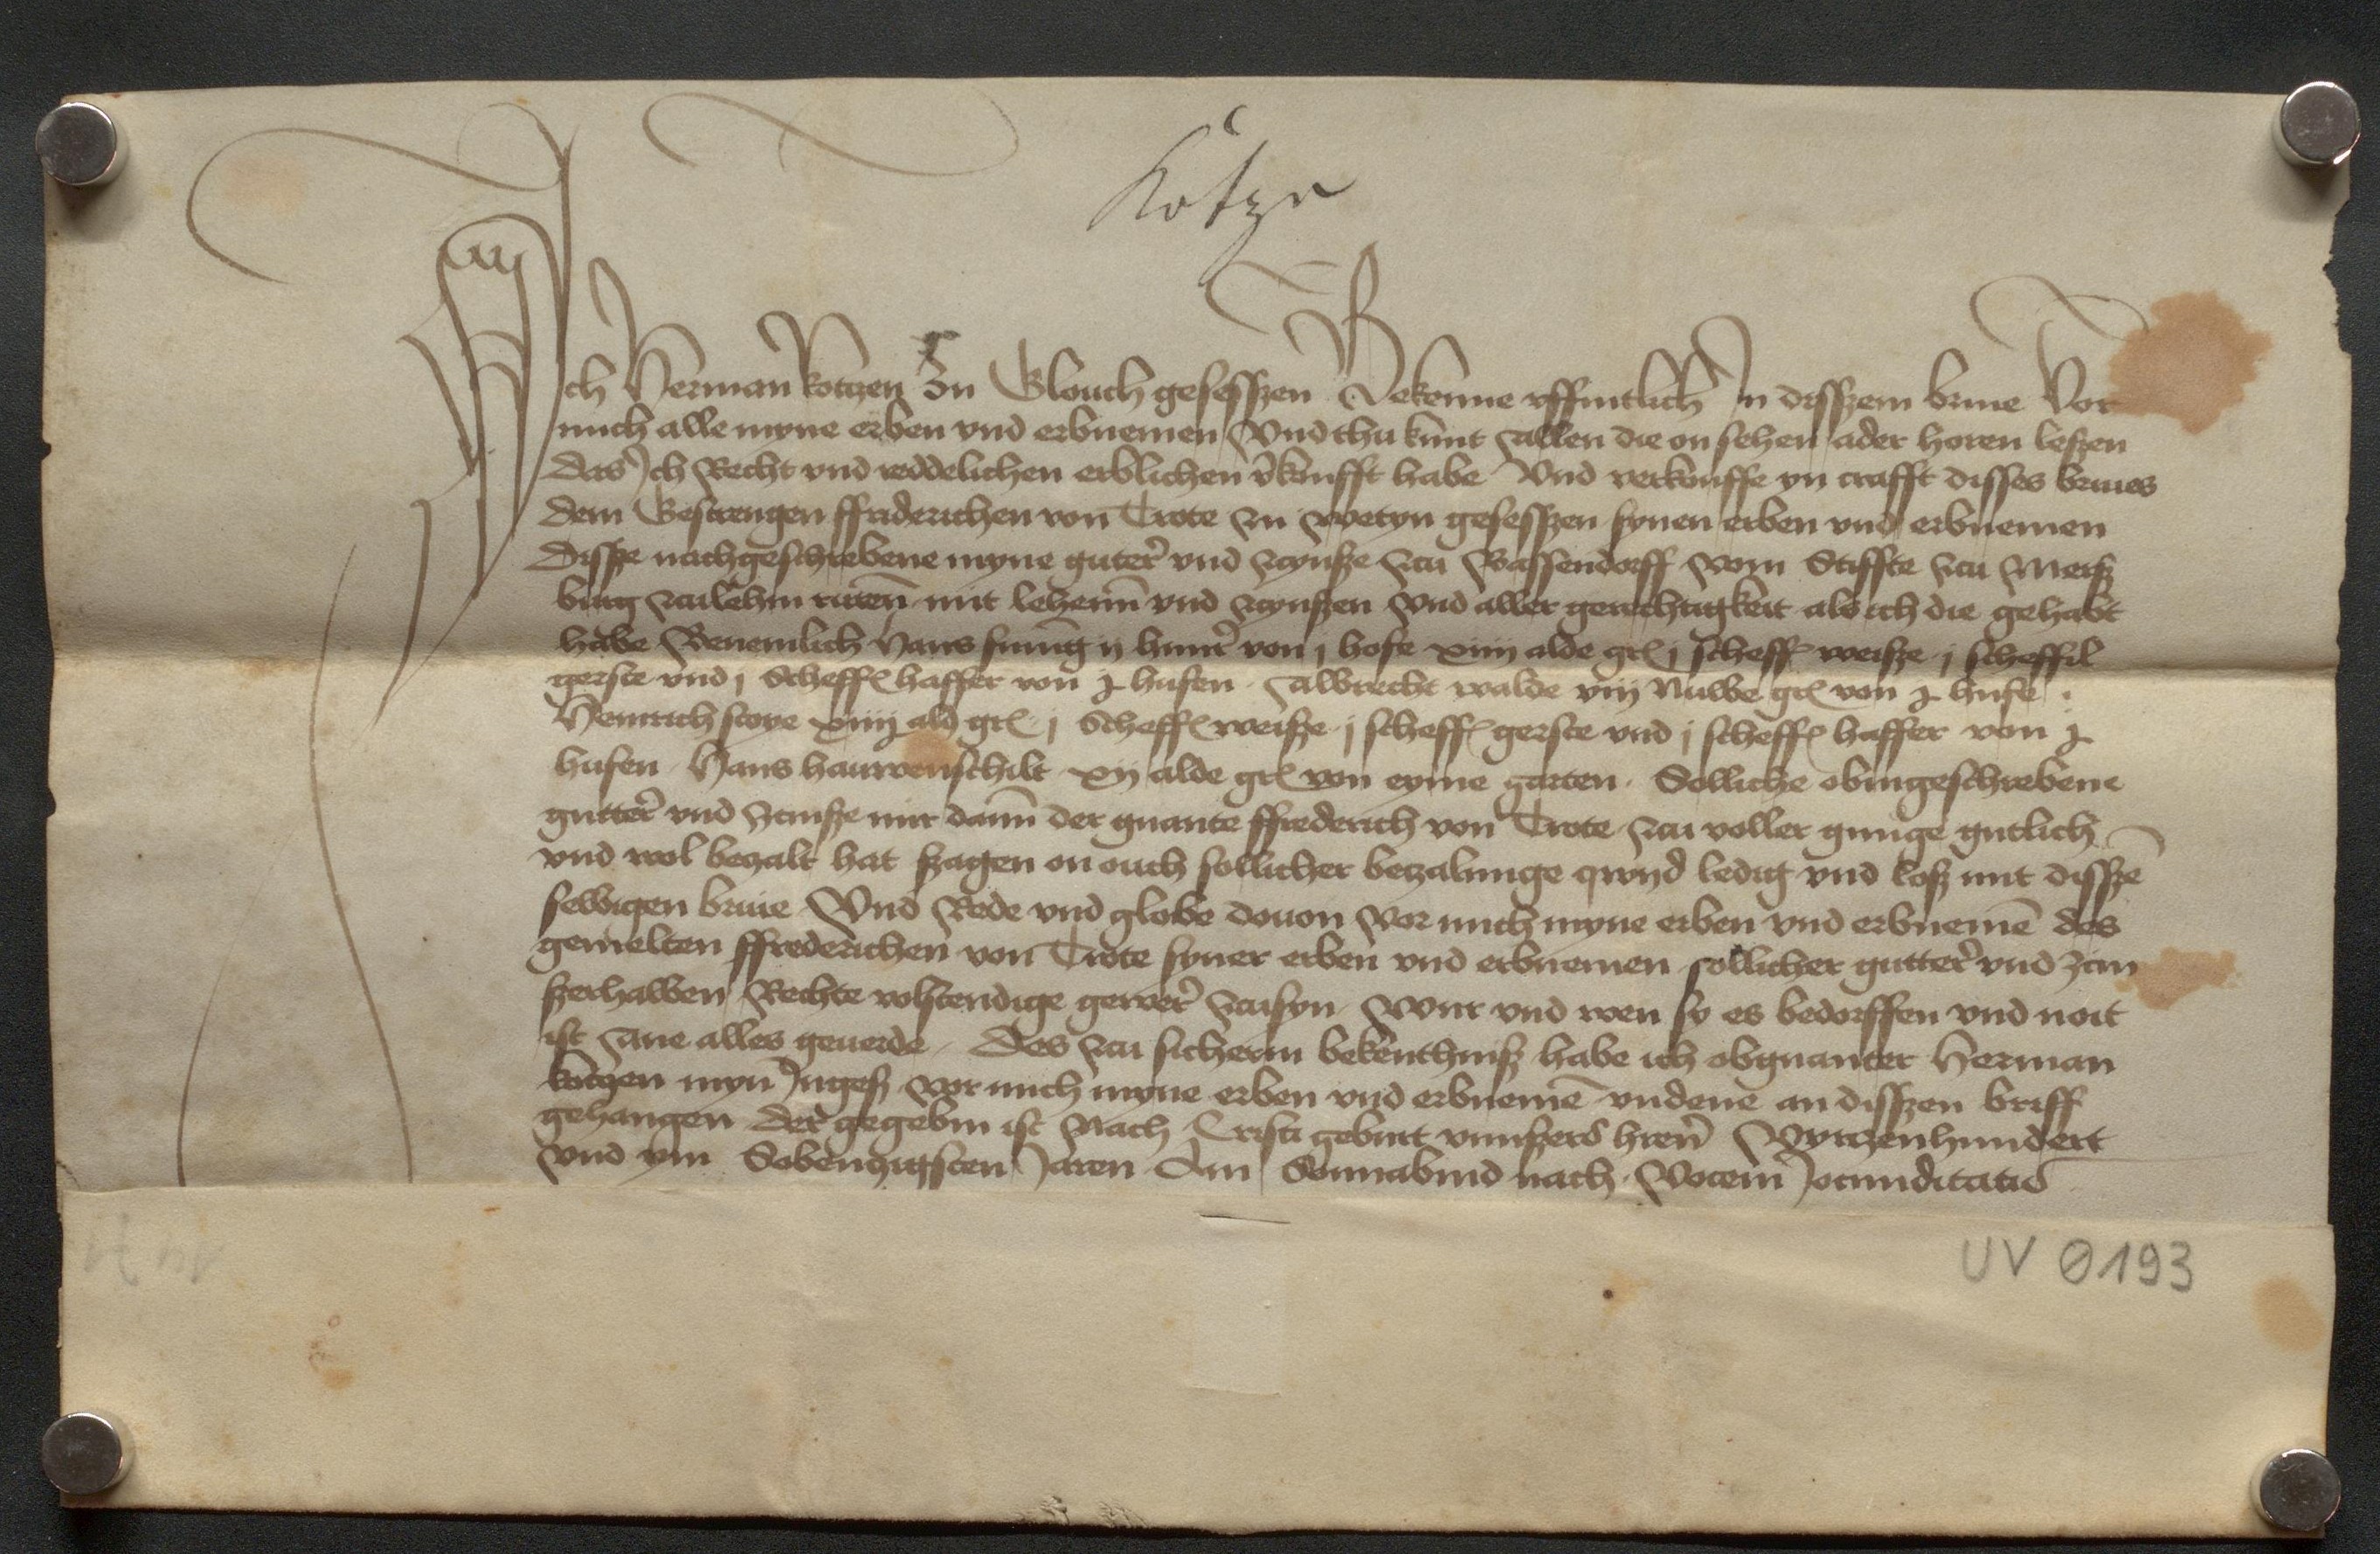 Kotze
Ich Herman kotzen Zu Glouch gesesszen Bekenne uffintlich In disszem briue Vor
mich alle myne erben vnd erbnemen Vnd thu kunt Allen die on sehen ader horen leszen
das Ich Recht vnd reddelichen erblichen v̄koufft habe Vnd verkouffe yn crafft disses briues
dem Gestrengen ffriderichen von Trote zu Wetyn gesesszen synen erben vnd erbnemen
disse nachgeschrebene myne guter vnd zcynsze zcu Vom Stiffte zcu Mersz
burg zculehin mit lehenn vnd zcynszen Vnd aller gerechtigkeit als ich die gehabt
habe Benemlich Hans ij huner von j hofe xiiij alde gr j scheff weisze j scheffil
gerste vnd j Scheff haffer von j hufen Albrecht walde viij Nuwe gr von j hufe
Heinrich xiiij ald gr j Scheff weisze j scheff gerste vnd j scheff haffer von j
hufen Hans hauwenschilt xij alde gr von eyme garten Solliche obingeschrebene
gutter vnd zcinsze mir dann der gnante ffrederich von Trote zcu voller gnuge gutlich
vnd wol betzalt hat szagen on ouch sollicher betzalunge qwyd ledig vnd losz mit dissze
selbigen briue Vnd Rede vnd globe douon Vor mich myne erben vnd erbnemē des
gemelten ffrederichen von Trote syner erben vnd erbnemen sollicher gutter vnd zcin
szerhalben Rechte volstendige gewer zcusyn Wur vnd wen sy es bedorffen vnd noit
ist Ane alles geuerde Des zcu sicherm bekenthnisz habe ich obgnanter Herman
kotzen myn Ingesz vor mich myne erben vnd erbnemē vndene an disszen briff
gehangen Der gegebin ist Nach Cristi geburt vnnszers hren Vyrtzenhundert
vnd ym Sobentzigsten Jaren Am Sonnabind nach Vocem Jocunditatis
UV 0193